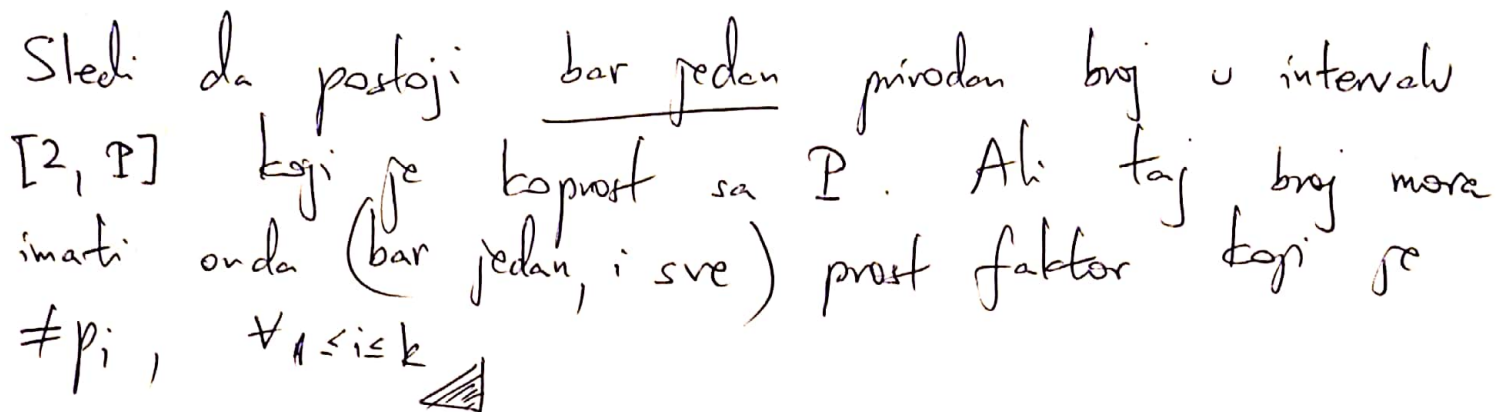 Sledi da postoji bar jedan prirodan broj u intervalu
[2, P] koji je koprost sa P. Ali taj broj mora
imati onda (bar jedan, i sve) prost faktor koji je
≠ pi, ∀ 1 ≤ i ≤ k